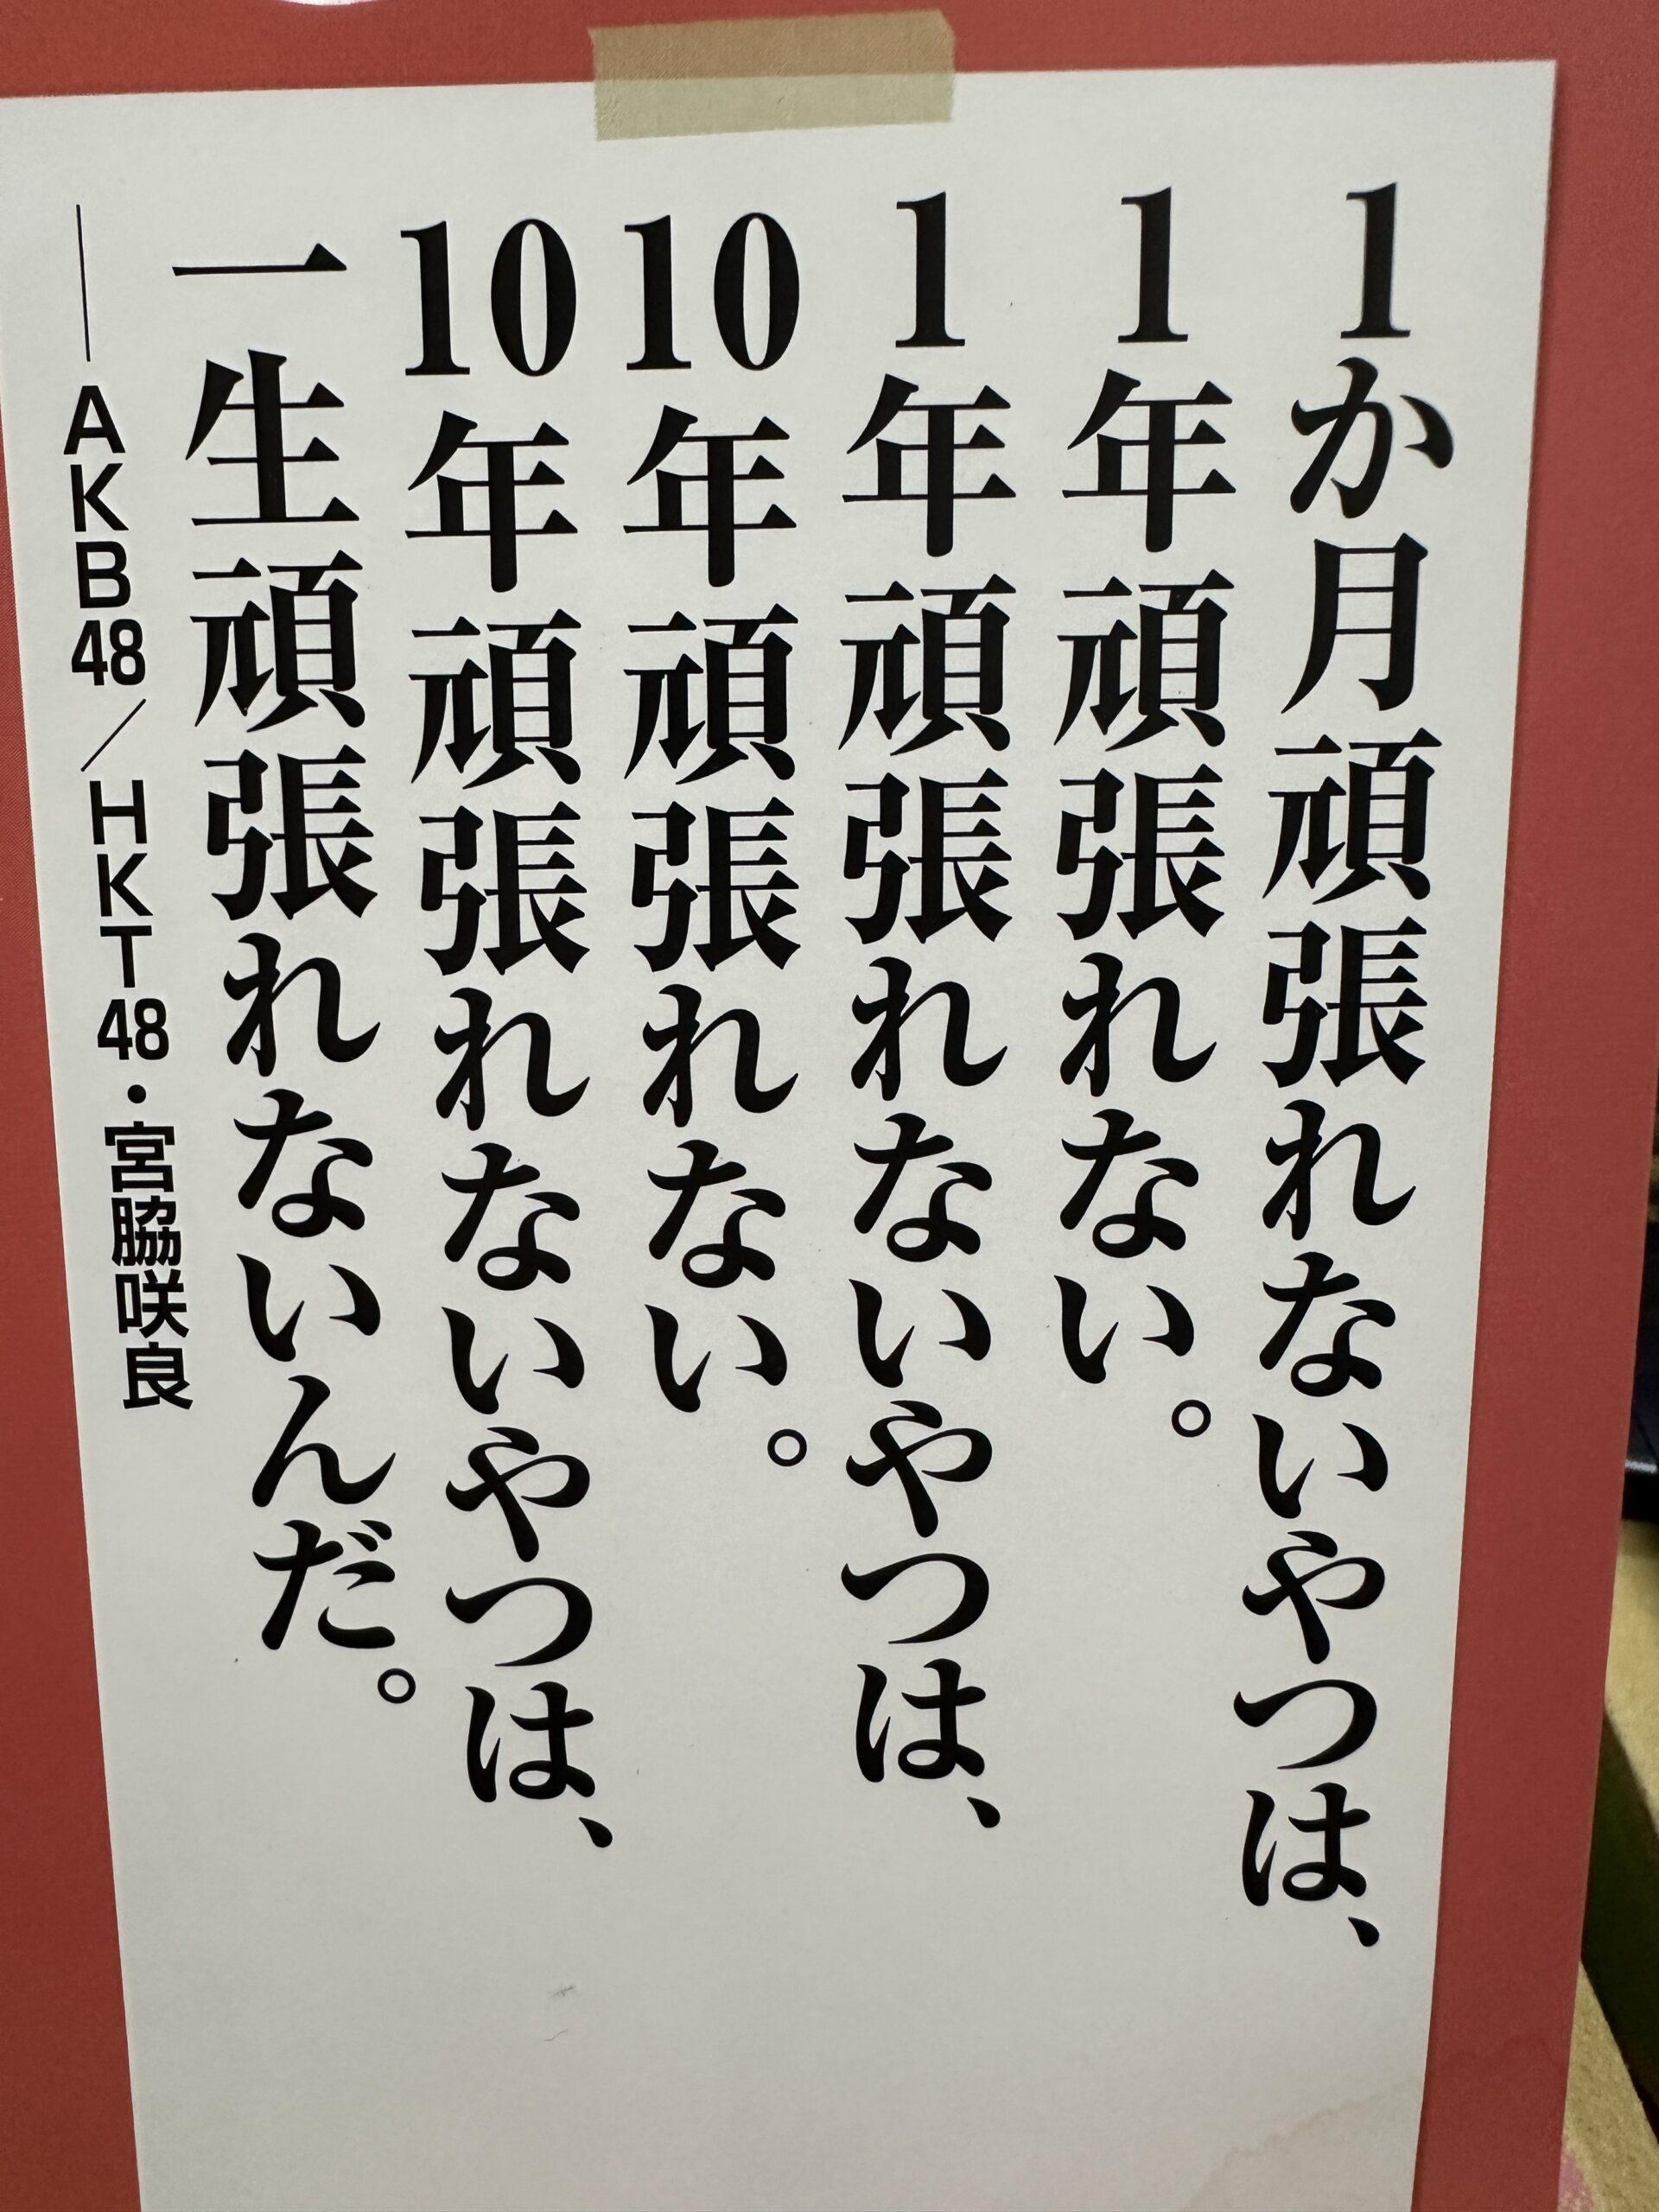 1か月頑張れないやつは、
1年頑張れない。
1年頑張れないやつは、
10年頑張れない。
10年頑張れないやつは、
一生頑張れないんだ。
──AKB48／HKT48・宮脇咲良